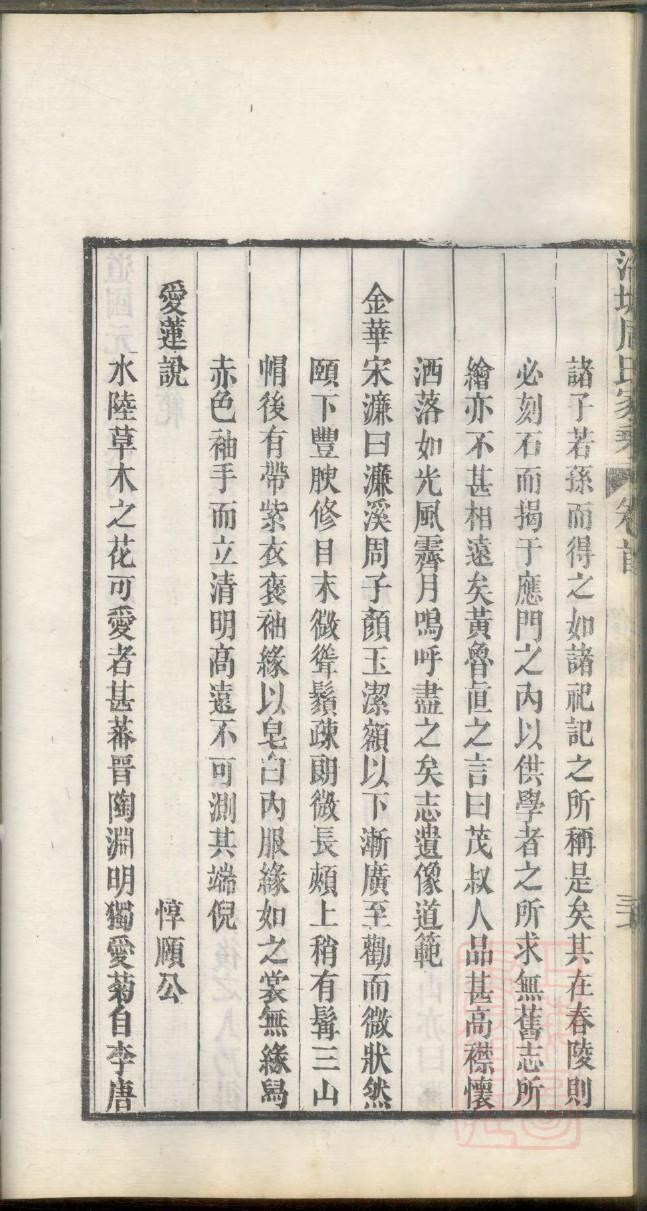 周氏家乘 卷首
諸子若孫而得之如諸祀記之所稱是矣其在舂陵則
必刻石而揭于應門之內以供學者之所求無舊志所
繪亦不甚相遠矣黃魯直之言曰茂叔人品甚高襟懷
洒落如光風霽月嗚呼盡之矣志遺像道範
金華宋濂曰濂溪周子顏玉潔額以下漸廣至顴而微狀然
頤下豐腴修目末微聳鬚疎朗微長頰上稍有髯三山
帽後有帶紫衣褒袖緣以皂白內服緣如之裳無緣舄
赤色袖手而立清明高遠不可測其端倪
愛蓮說 惇頤公
水陸草木之花可愛者甚蕃晉陶淵明獨愛菊自李唐